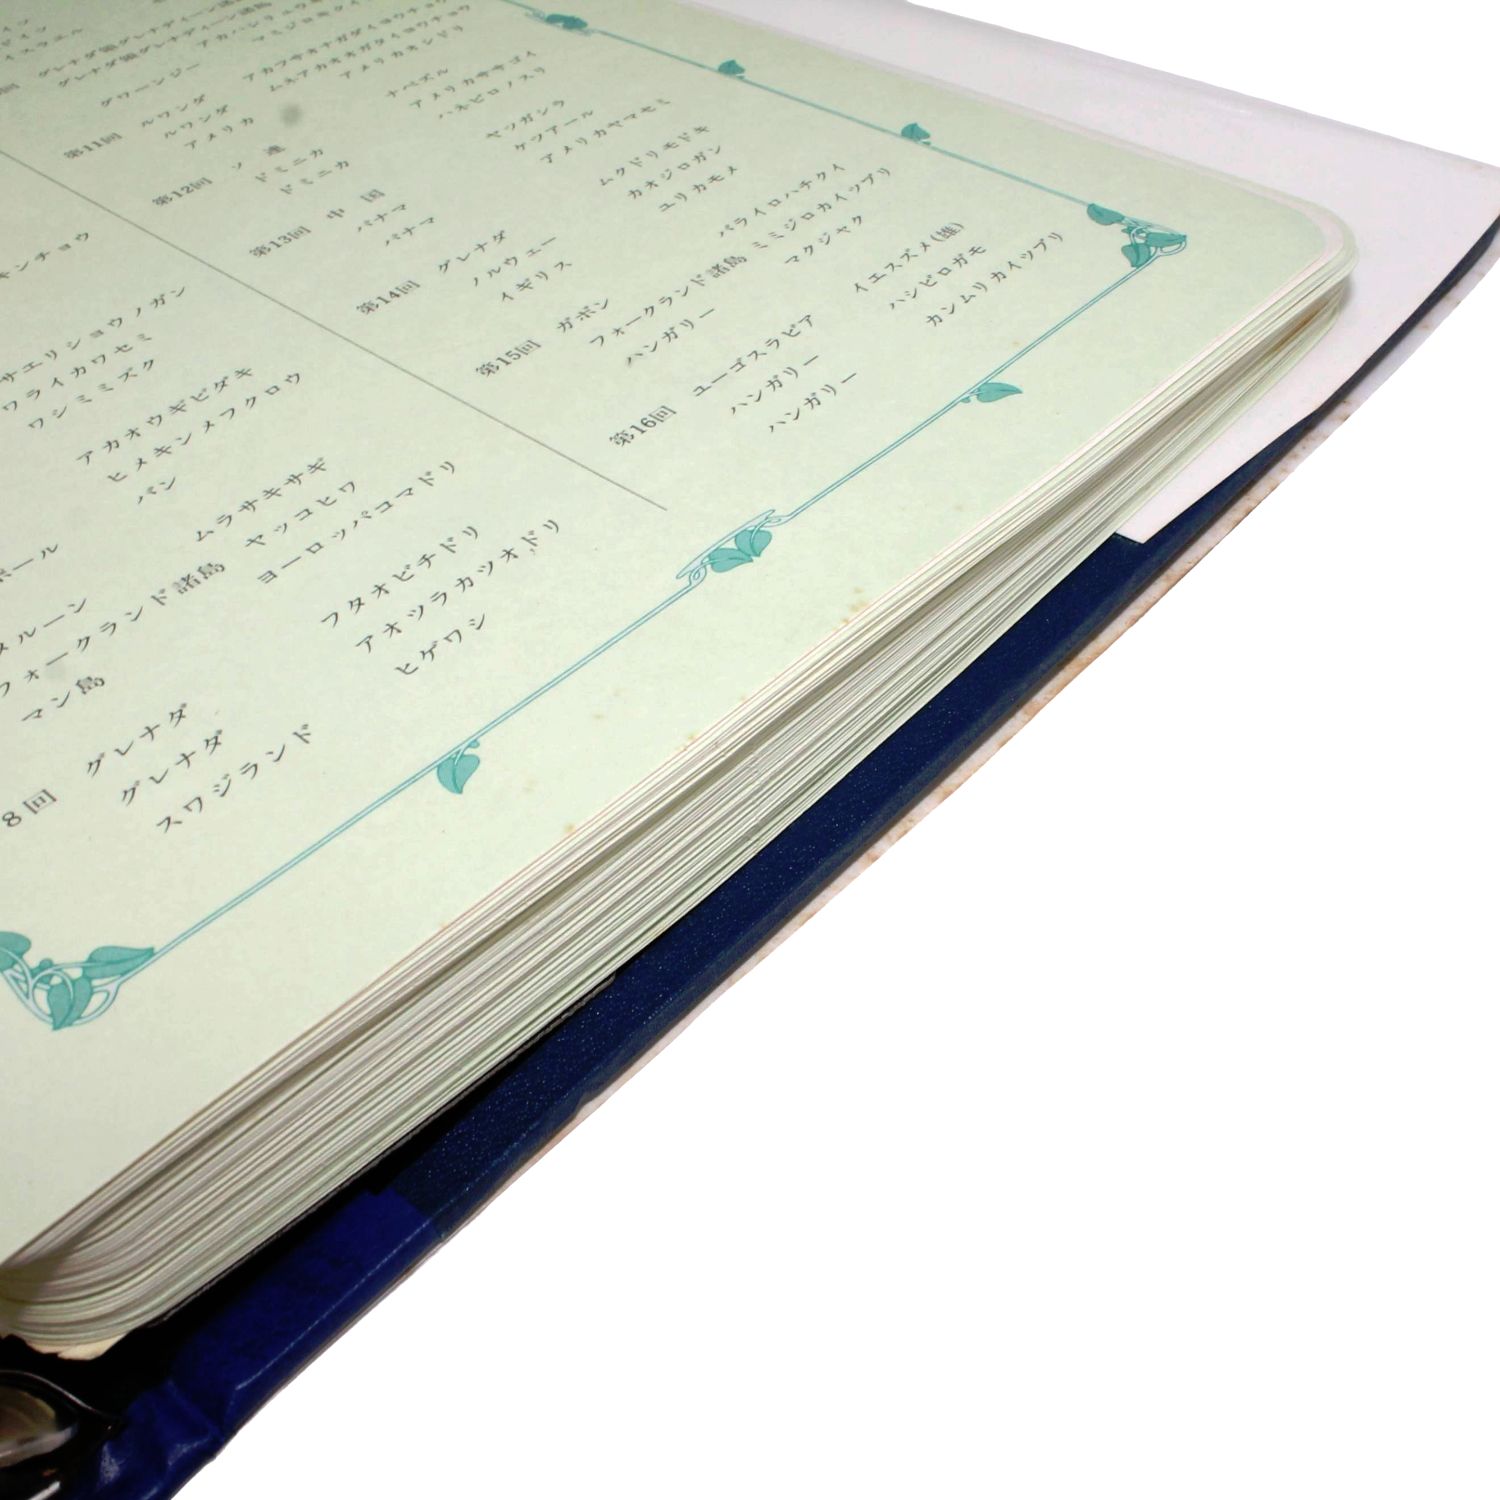 キンチョウ
サエリショウノガン
ワライカワセミ
ワシミミズク
アカオウギビダキ
ヒメキンメフクロウ
バン
ムラサキサギ
フォークランド諸島 ヤッコヒワ
マン島 ヨーロッパコマドリ
8回 グレナダ フタオビチドリ
グレナダ アオツラカツオドリ
スワジランド ヒゲワシ
グレナダ領グレナディーン諸島
グレナダ領グレナディーン諸島
ガーンジー
第11回 ルワンダ アカフサオナガタイヨウチョウ
ルワンダ ムネアカオオガタイヨウチョウ
アメリカ アメリカオシドリ
第12回 ソ連 ナベヅル
ドミニカ アメリカササゴイ
ドミニカ ハネビロノスリ
第13回 中国 ヤツガシラ
パナマ ケツアール
パナマ アメリカヤマセミ
第14回 グレナダ ムクドリモドキ
ノルウェー カオジロガン
イギリス ユリカモメ
第15回 ガボン バライロハチクイ
フォークランド諸島 ミミジロカイツブリ
ハンガリー マクジャク
第16回 ユーゴスラビア イエスズメ(雄)
ハンガリー ハシビロガモ
ハンガリー カンムリカイツブリ